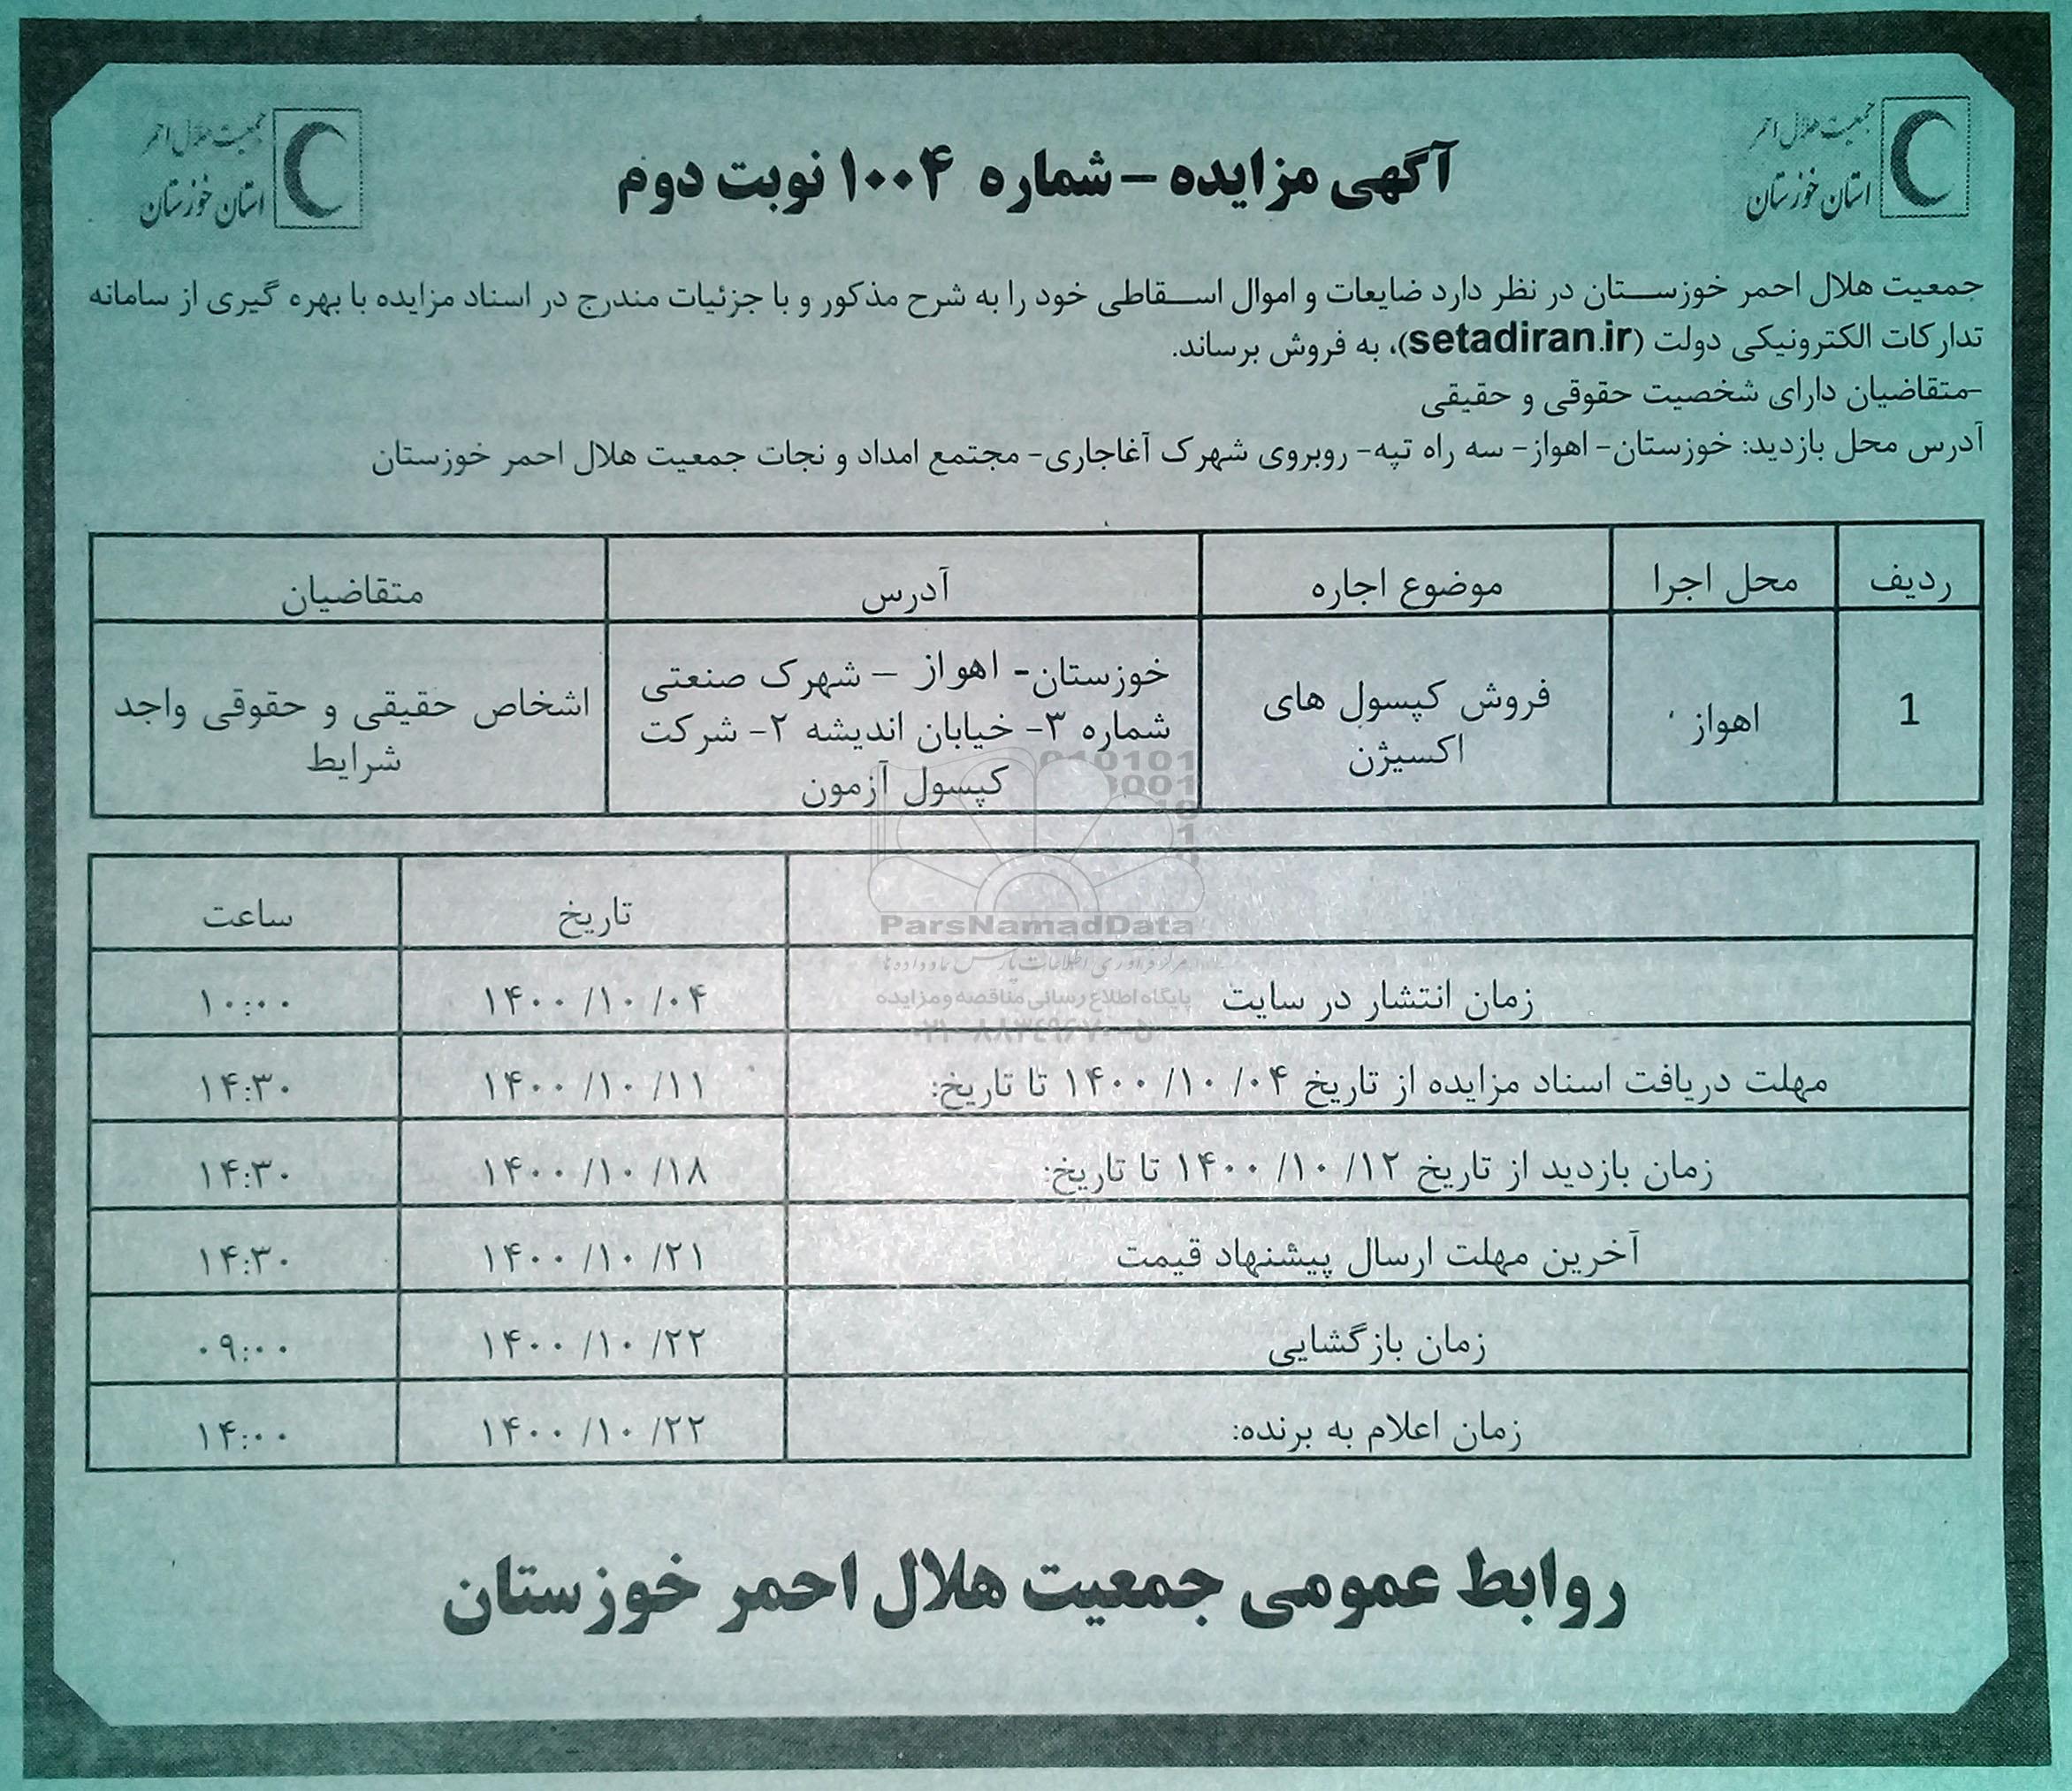 جمعیت هلال احمر
استان خوزستان
آگهی مزایده – شماره ۱۰۰۴ نوبت دوم
جمعیت هلال احمر
استان خوزستان
جمعیت هلال احمر خوزستان در نظر دارد ضایعات و اموال اسقاطی خود را به شرح مذکور و با جزئیات مندرج در اسناد مزایده با بهره گیری از سامانه
تدارکات الکترونیکی دولت (setadiran.ir)، به فروش برساند.
-متقاضیان دارای شخصیت حقوقی و حقیقی
آدرس محل بازدید: خوزستان- اهواز- سه راه تپه- روبروی شهرک آغاجاری- مجتمع امداد و نجات جمعیت هلال احمر خوزستان
ردیف محل اجرا موضوع اجاره آدرس متقاضیان
1 اهواز فروش کپسول های اکسیژن خوزستان- اهواز – شهرک صنعتی شماره ۳- خیابان اندیشه ۲- شرکت کپسول آزمون اشخاص حقیقی و حقوقی واجد شرایط
تاریخ ساعت
زمان انتشار در سایت ۱۴۰۰/۱۰/۰۴ ۱۰:۰۰
مهلت دریافت اسناد مزایده از تاریخ ۱۴۰۰/۱۰/۰۴ تا تاریخ: ۱۴۰۰/۱۰/۱۱ ۱۴:۳۰
زمان بازدید از تاریخ ۱۴۰۰/۱۰/۱۲ تا تاریخ: ۱۴۰۰/۱۰/۱۸ ۱۴:۳۰
آخرین مهلت ارسال پیشنهاد قیمت ۱۴۰۰/۱۰/۲۱ ۱۴:۳۰
زمان بازگشایی ۱۴۰۰/۱۰/۲۲ ۰۹:۰۰
زمان اعلام به برنده: ۱۴۰۰/۱۰/۲۲ ۱۴:۰۰
روابط عمومی جمعیت هلال احمر خوزستان
ParsNamadData
پایگاه اطلاع رسانی مناقصه و مزایده